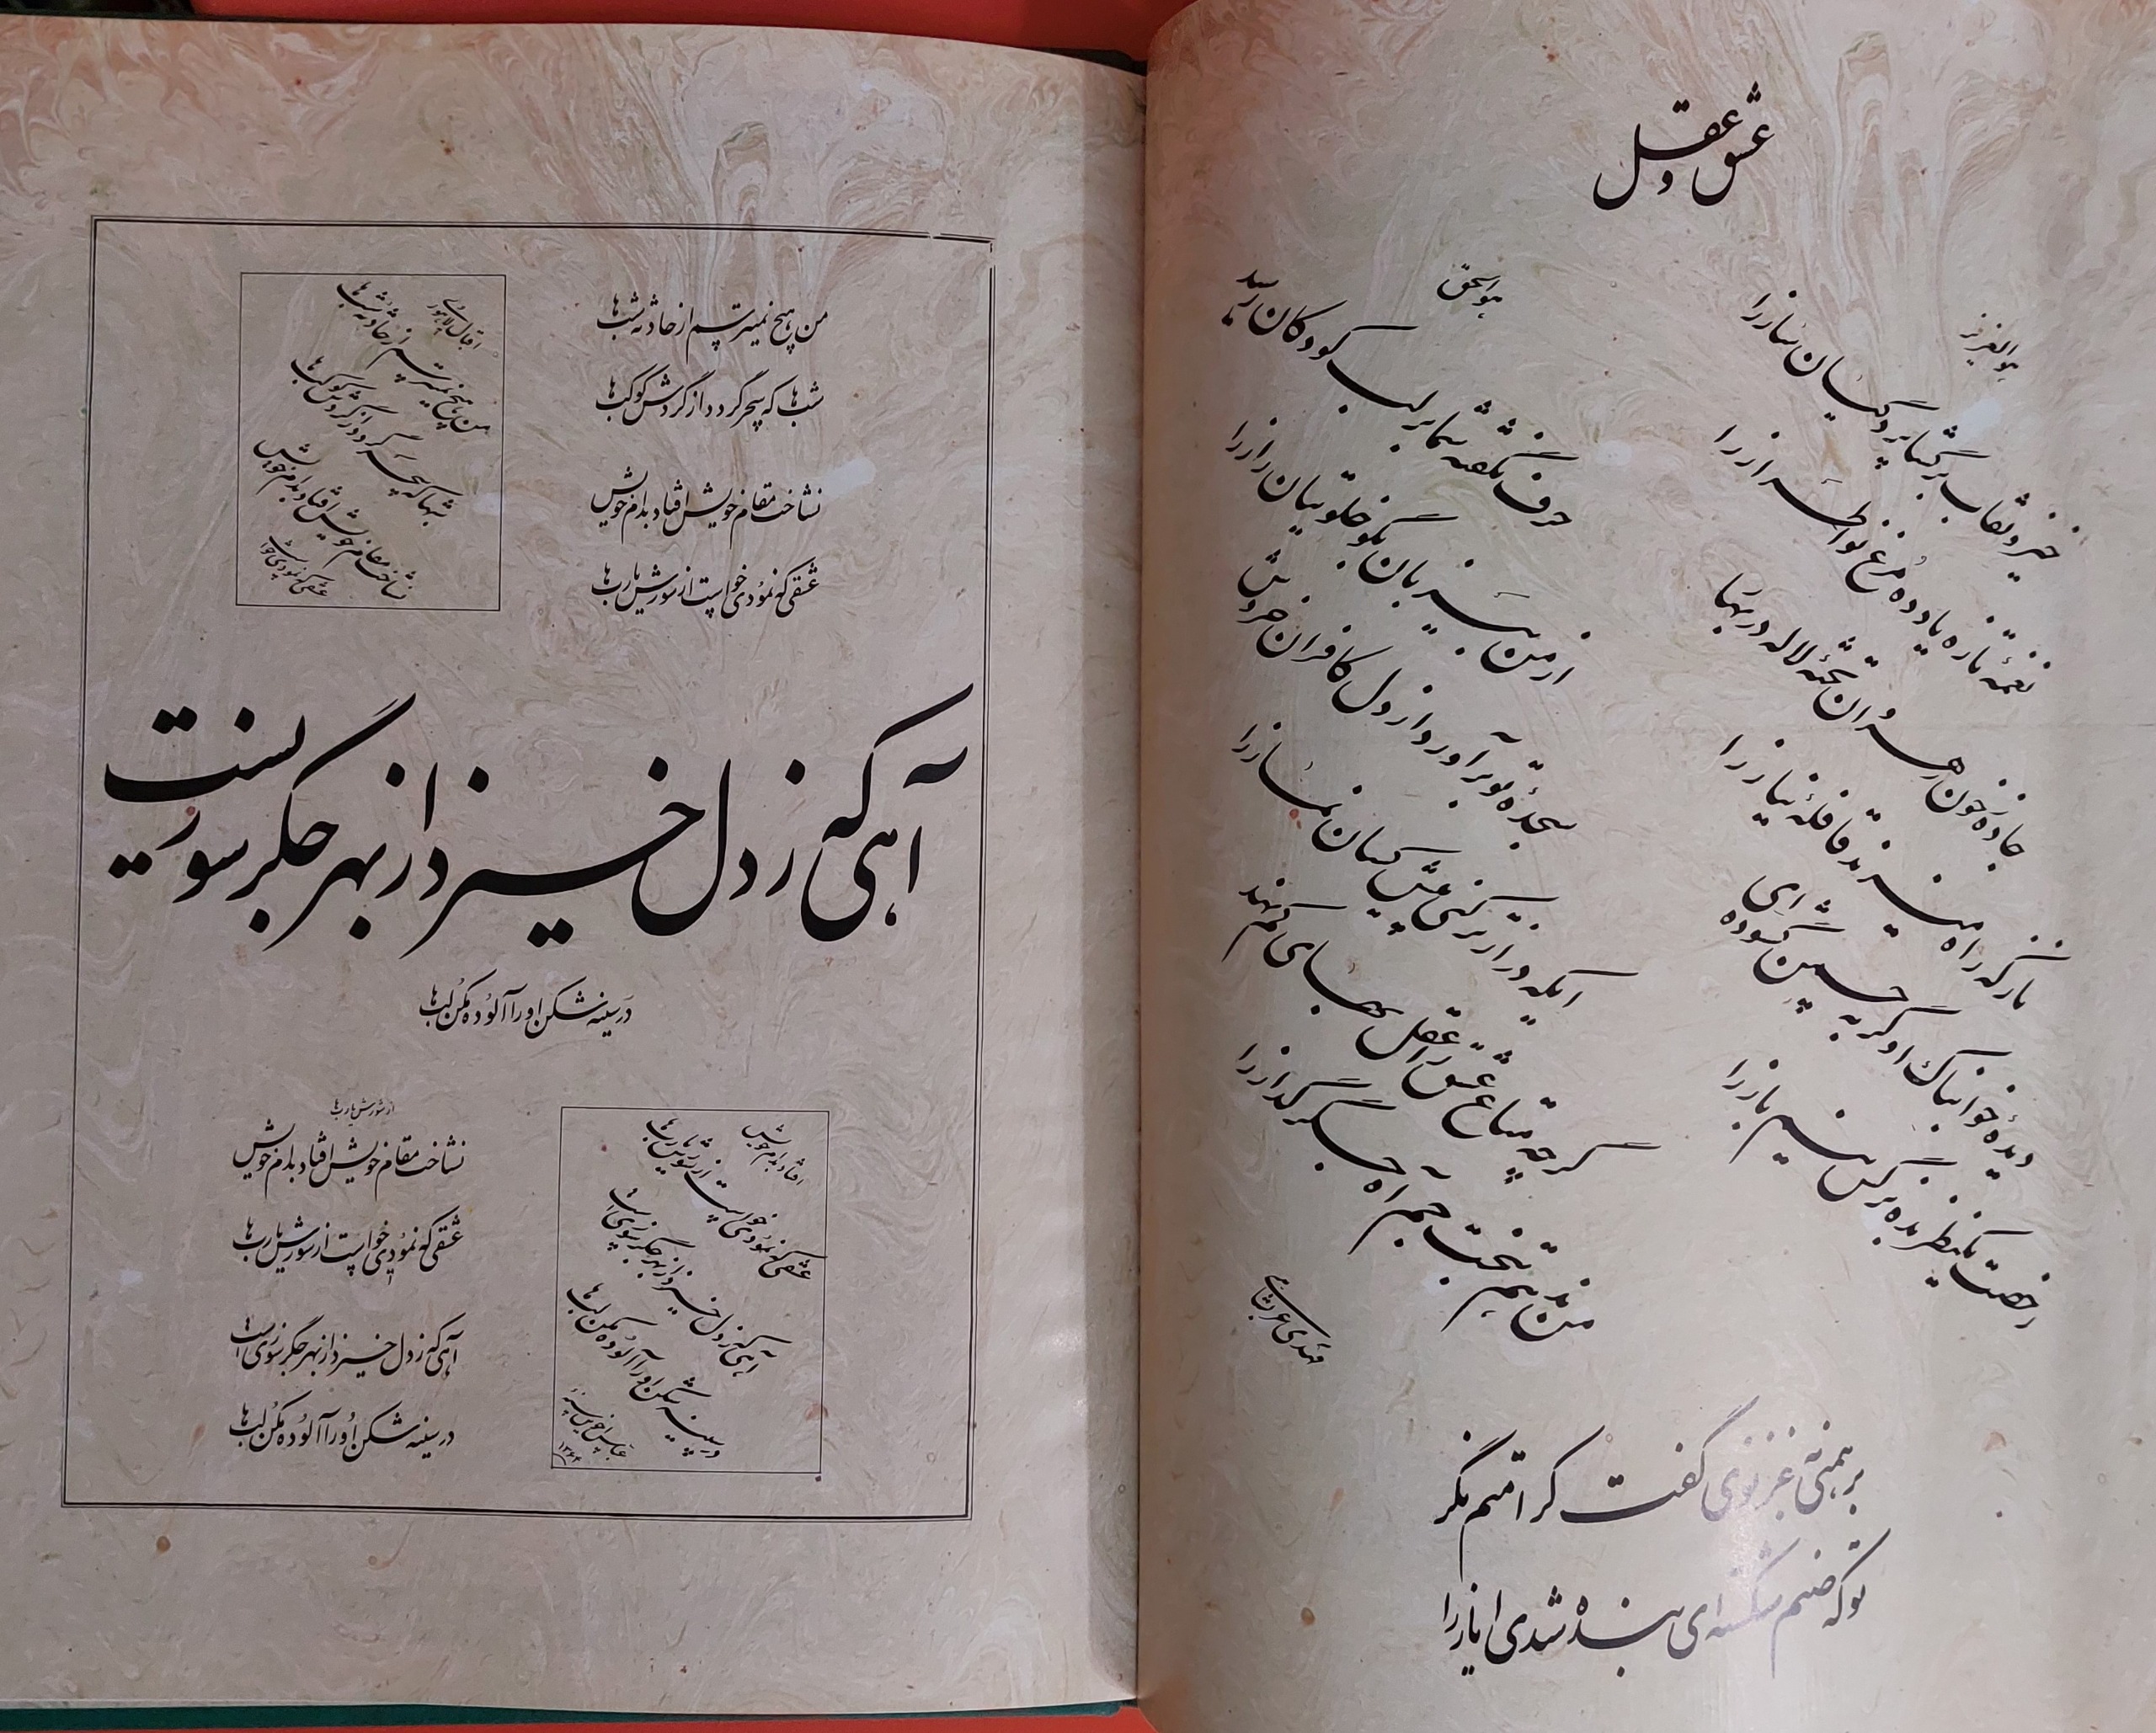 عشق و عقل
هوالعزیز
خیز و نقاب برگشا پردگیان ساز را
نغمهٔ تازه یاد ده مرغ نواطراز را
جاده ز خون رهروان تختهٔ لاله در بهار
ناز که راه میزند قافلهٔ نیاز را
دیدهٔ خوابناک او گر به چمن گشوده‌ای
رخصت یک نظر بده نرگس نیم باز را
هوالحق
حرف نگفتهٔ شما بر لب کودکان رسید
از من بی زبان بگو خلوتیان راز را
سجدهٔ تو برآورد از دل کافران خروش
ایکه دراز تر کنی پیش کسان نماز را
گرچه متاع عشق را عقل بهای کم نهد
من ندهم به تخت جم آه جگرگداز را
مهدی عربشاهی
برهمنی به غزنوی گفت کرامتم نگر
تو که صنم شکسته‌ای بنده شدی ایاز را
من هیچ نمیترسم از حادثه شب‌ها
شب‌ها که سحر گردد از گردش کوکب‌ها
نشناخت مقام خویش افتاد بدام خویش
عشقی که نمودی خواست از شورش یارب‌ها
اقبال لاهوری
من هیچ نمیترسم از حادثه شب‌ها
شبها که سحر گردد از گردش کوکب‌ها
نشناخت مقام خویش افتاد بدام خویش
عشقی که نمودی خواست
آهی که ز دل خیزد از بهر جگر سوزیست
در سینه شکن او را آلوده مکن لب‌ها
افتاد بدام خویش
عشقی که نمودی خواست از شورش یارب‌ها
آهی که ز دل خیزد از بهر جگر سوزی است
در سینه شکن او را آلوده مکن لب‌ها
عباس اخوین
از شورش یارب‌ها
نشناخت مقام خویش افتاد بدام خویش
عشقی که نمودی خواست از شورش یارب‌ها
آهی که ز دل خیزد از بهر جگر سوزی است
در سینه شکن او را آلوده مکن لب‌ها